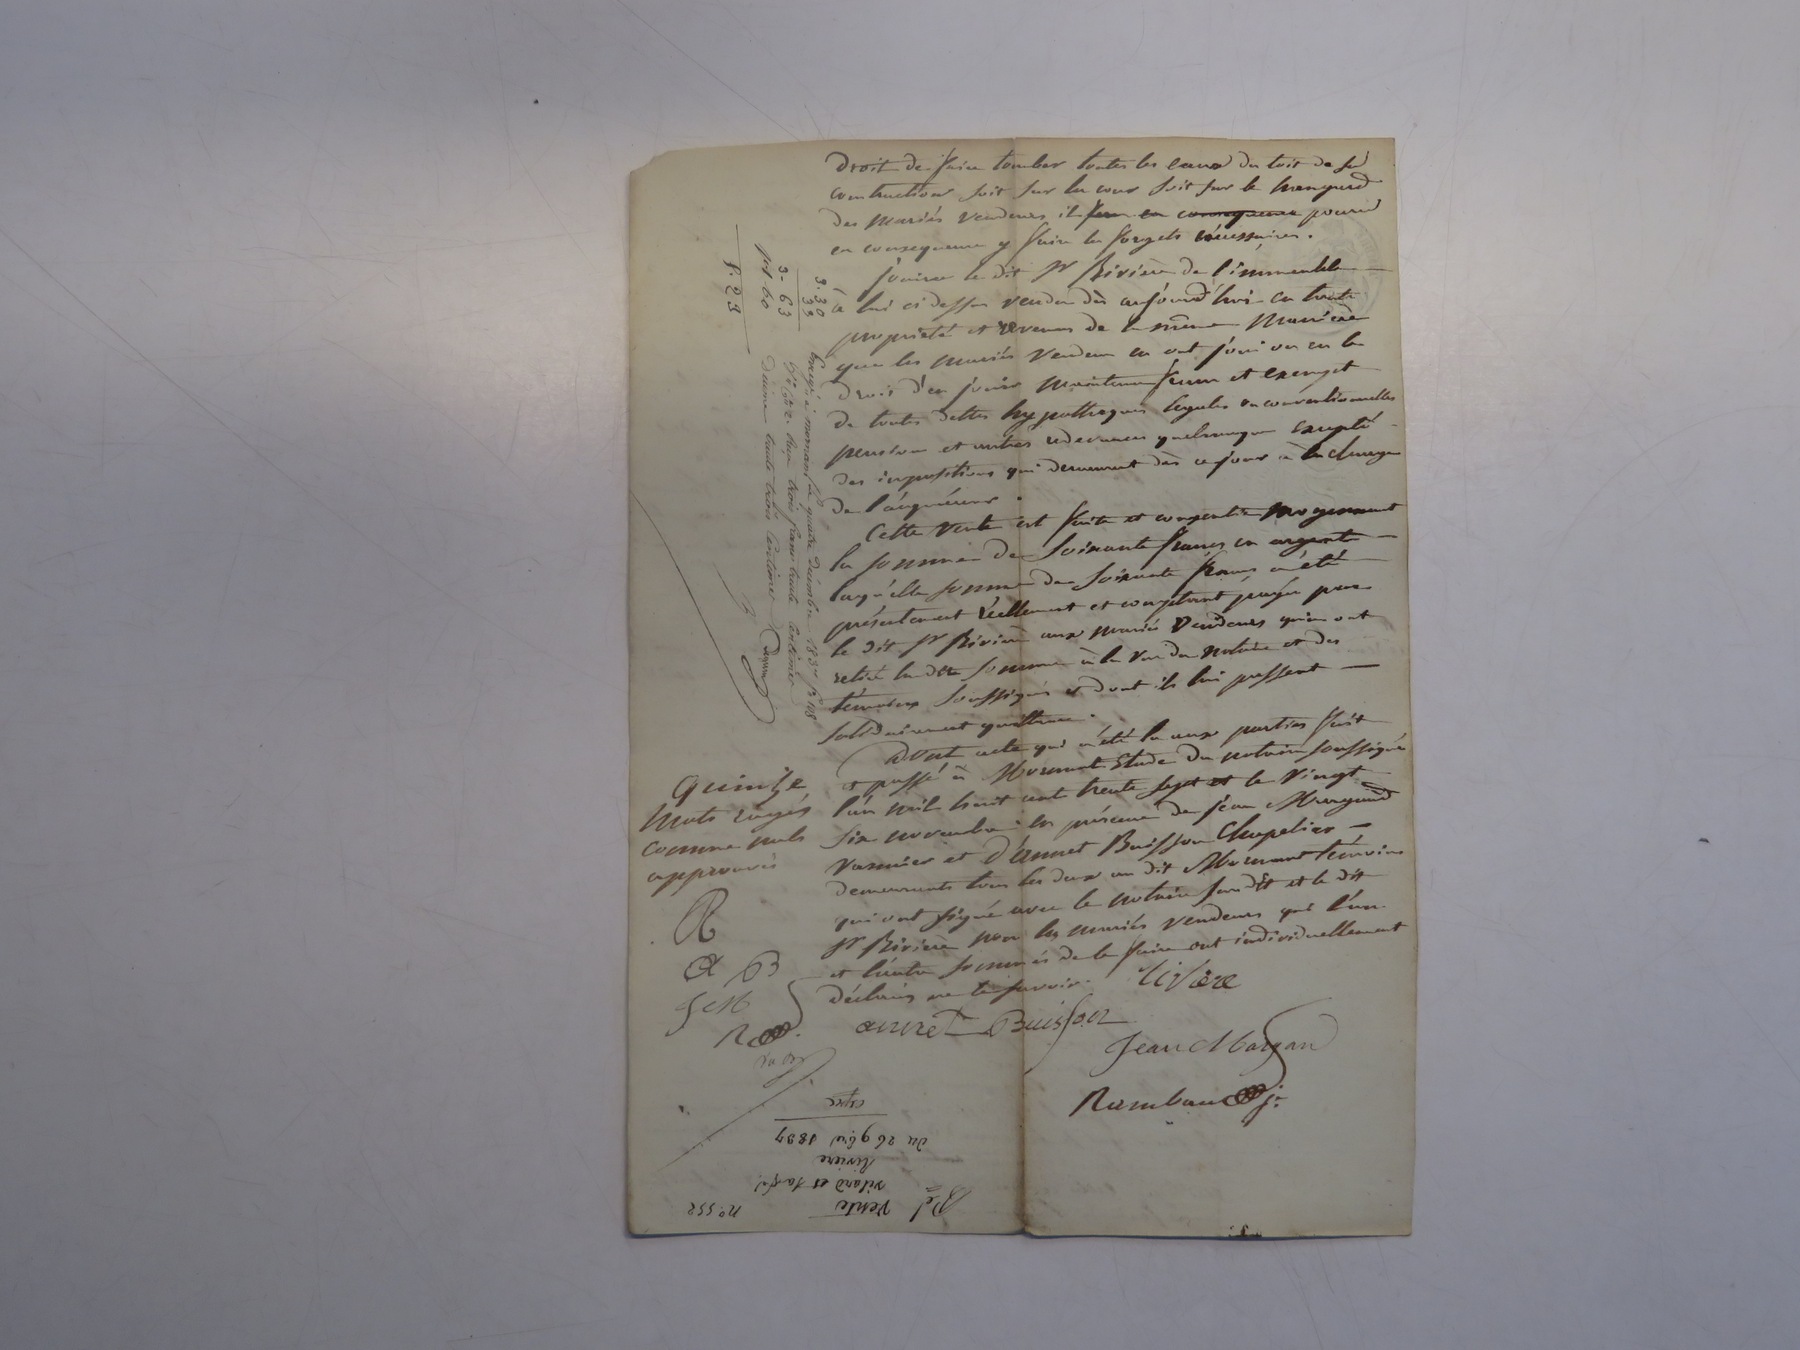 Droit de faire tomber toutes les eaux du toit de sa
contruction soit sur la cour soit sur le hangard
des mariés vendeurs il sera en consequence pourra
en consequence y faire les forgets nécessaires.
Jouira le dit Sr Rivière de l'immeuble
a lui ci dessus vendu dès aujourd'hui en toute
propriété et revenus de la même manière
que les mariés vendeurs en ont joui ou eu le
droit d'en jouir maintenu franc et exempt
de toutes dettes hypothèques légales ou conventionnelles
pension et autres redevances quelconques excepté
des impositions qui demeurent dès ce jour à la charge
de l'aquéreur.
Cette vente est faite et consentie moyennant
la somme de soixante francs en argent
laquelle somme de soixante francs a été
présentement réellement et comptant payée par
le dit Sr Rivière aux mariés vendeurs qui ont
retiré la dte somme à la vue du notaire et des
témoins soussignés et dont ils lui passent
solidairement quittance.
Dont acte qui a été lu aux parties fait
et passé à Mornant Etude du notaire soussigné
l'an mil huit cent trente sept et le vingt
six novembre en présence de Jean Margand
vannier et d'annet Buisson Chapelier
demeurants tous les deux au dit Mornant témoins
qui ont signé avec le notaire susdit et le dit
Sr Rivière non les mariés vendeurs qui l'un
et l'autre sommés de le faire ont individuellement
déclarés ne le savoir.
riviere
annet Buisson
Jean Margan
Rambaud jr
quinze
Mots rayés
comme nuls
approuvés
R
A B
J M
R
3.30
33
3-63
1-60
5.23
Enregé à mornant le quatre décembre 1837 fo 118
Vo Ce 2. reçu trois francs trente centimes
Décime trente trois centimes
no. 552
Vente
vilard et
Riviere
du 26 9bre 1837
copie